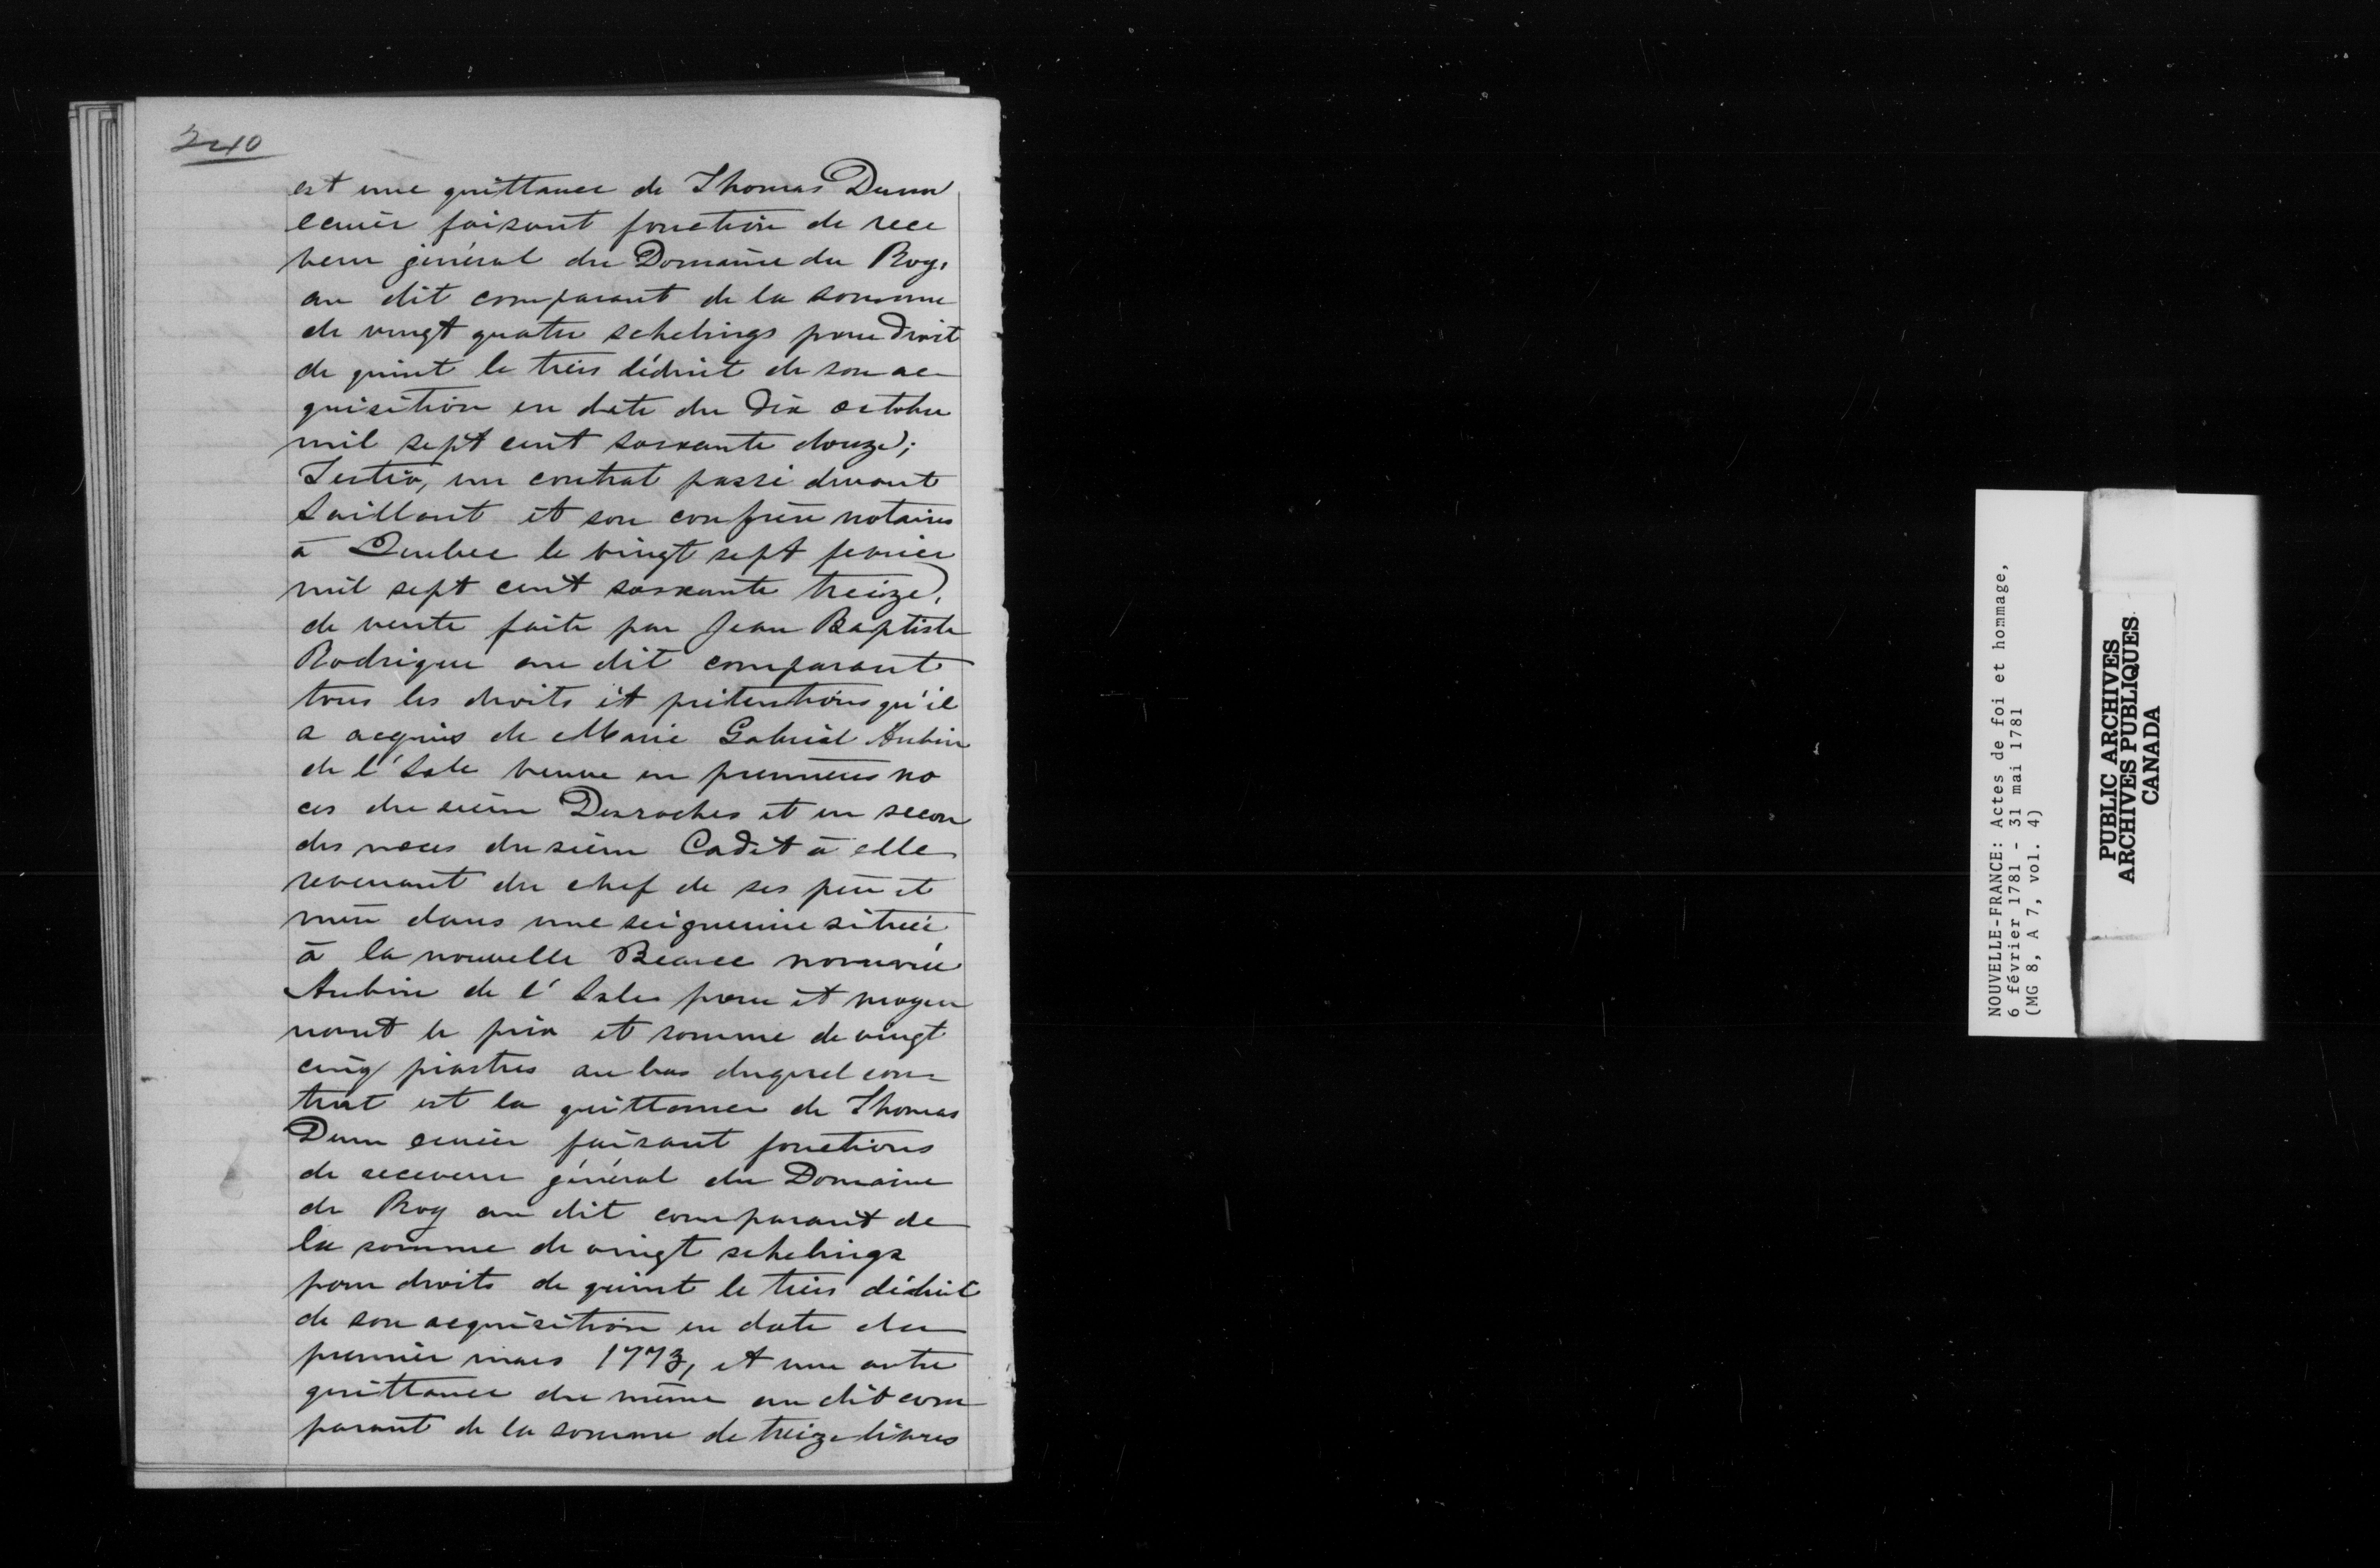 240
est une quittance de Thomas Dunn
ecuier faisant fonction de rece
veur général du Domaine du Roy,
au dit comparant de la somme
de vingt quatre schelings pour droit
de quint le tiers déduit de son ac
quisition en date du dix octobre
mil sept cent soixante douze;
Tertio, un contrat passé devant
Saillant et son confrère notaires
à Quebec le vingt sept fevrier
mil sept cent soixante treize,
de vente faite par Jean Baptiste
Rodrigue au dit comparant
tous les droits et prétentions qu'il
a acquis de Marie Gabriel Aubin
de l'Isle veuve en premières no
ces du sieur Desroches et en secon
des noces du sieur Cadet à elle
revenant du chef de ses père et
mère dans une seigneurie située
à la nouvelle Beauce nommée
Aubin de l'Isle pour et moyen
nant le prix et somme de vingt
cinq piastres au bas duquel con-
trat est la quittance de Thomas
Dunn ecuier faisant fonctions
de receveur général du Domaine
du Roy au dit comparant de
la somme de vingt schelings
pour droits de quint le tiers déduit
de son acquisition en date du
premier mars 1773, et une autre
quittance du même au dit com
parant de la somme de treize livres
NOUVELLE-FRANCE: Actes de foi et hommage,
6 février 1781 - 31 mai 1781
(MG 8, A 7, vol. 4)
PUBLIC ARCHIVES
ARCHIVES PUBLIQUES
CANADA